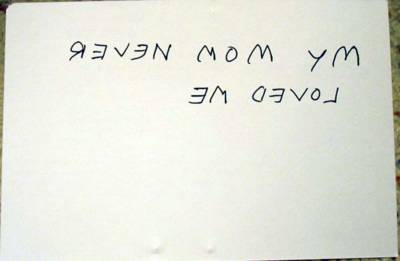 MY MOM NEVER
LOVED ME